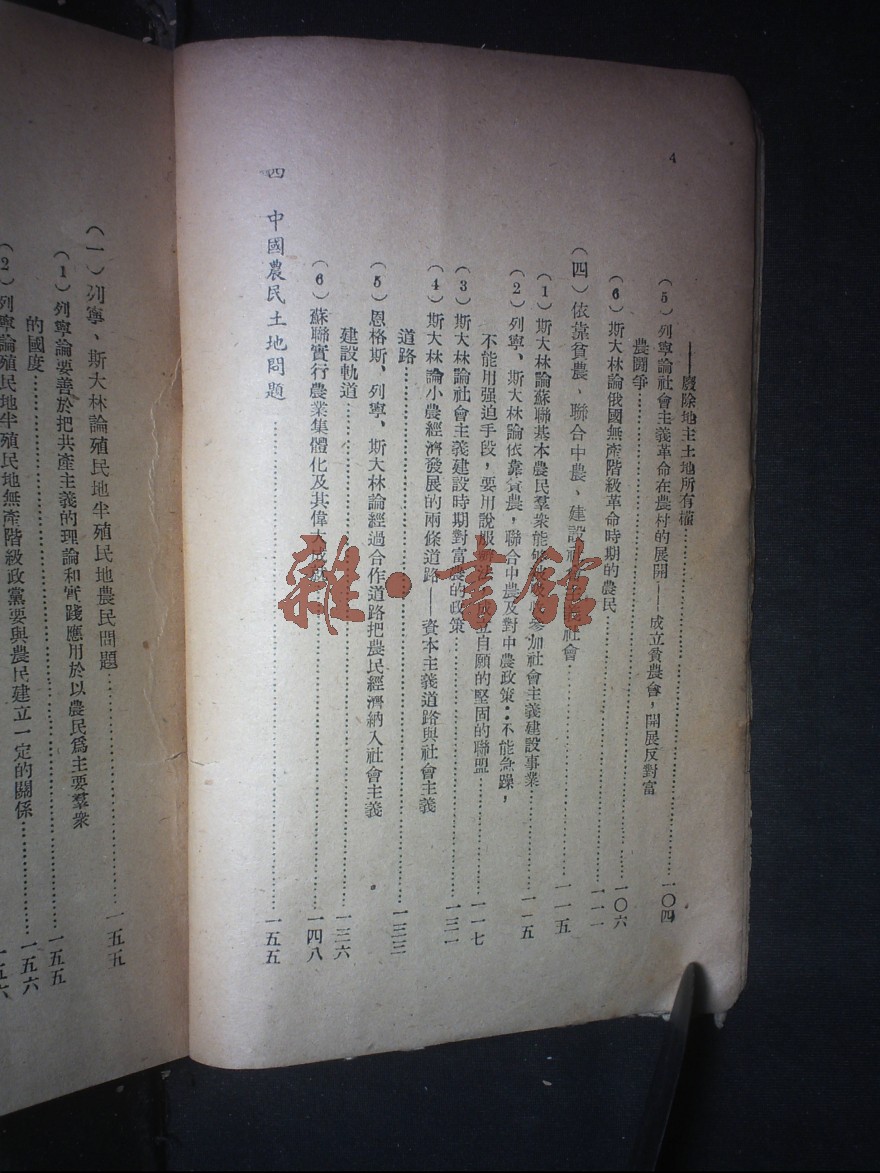 4
——廢除地主土地所有權……………一〇四
(5)列寧論社會主義革命在農村的展開——成立貧農會,開展反對富
農鬪爭……………一〇六
(6)斯大林論俄國無產階級革命時期的農民……………一一一
(四)依靠貧農、聯合中農、建設社會……………一一五
(1)斯大林論蘇聯基本農民羣衆能够參加社會主義建設事業……………一一五
(2)列寧、斯大林論依靠貧農,聯合中農及對中農政策:不能急躁,
不能用强迫手段,要用說服自願的堅固的聯盟……………一一七
(3)斯大林論社會主義建設時期對富農的政策……………一三一
(4)斯大林論小農經濟發展的兩條道路——資本主義道路與社會主義
道路……………一三三
(5)恩格斯、列寧、斯大林論經過合作道路把農民經濟納入社會主義
建設軌道……………一三六
(6)蘇聯實行農業集體化及其偉大……………一四八
四 中國農民土地問題……………一五五
(一)列寧、斯大林論殖民地半殖民地農民問題……………一五五
(1)列寧論要善於把共產主義的理論和實踐應用於以農民爲主要羣衆
的國度……………一五六
(2)列寧論殖民地半殖民地無產階級政黨要與農民建立一定的關係……………一五六
雜·書舘